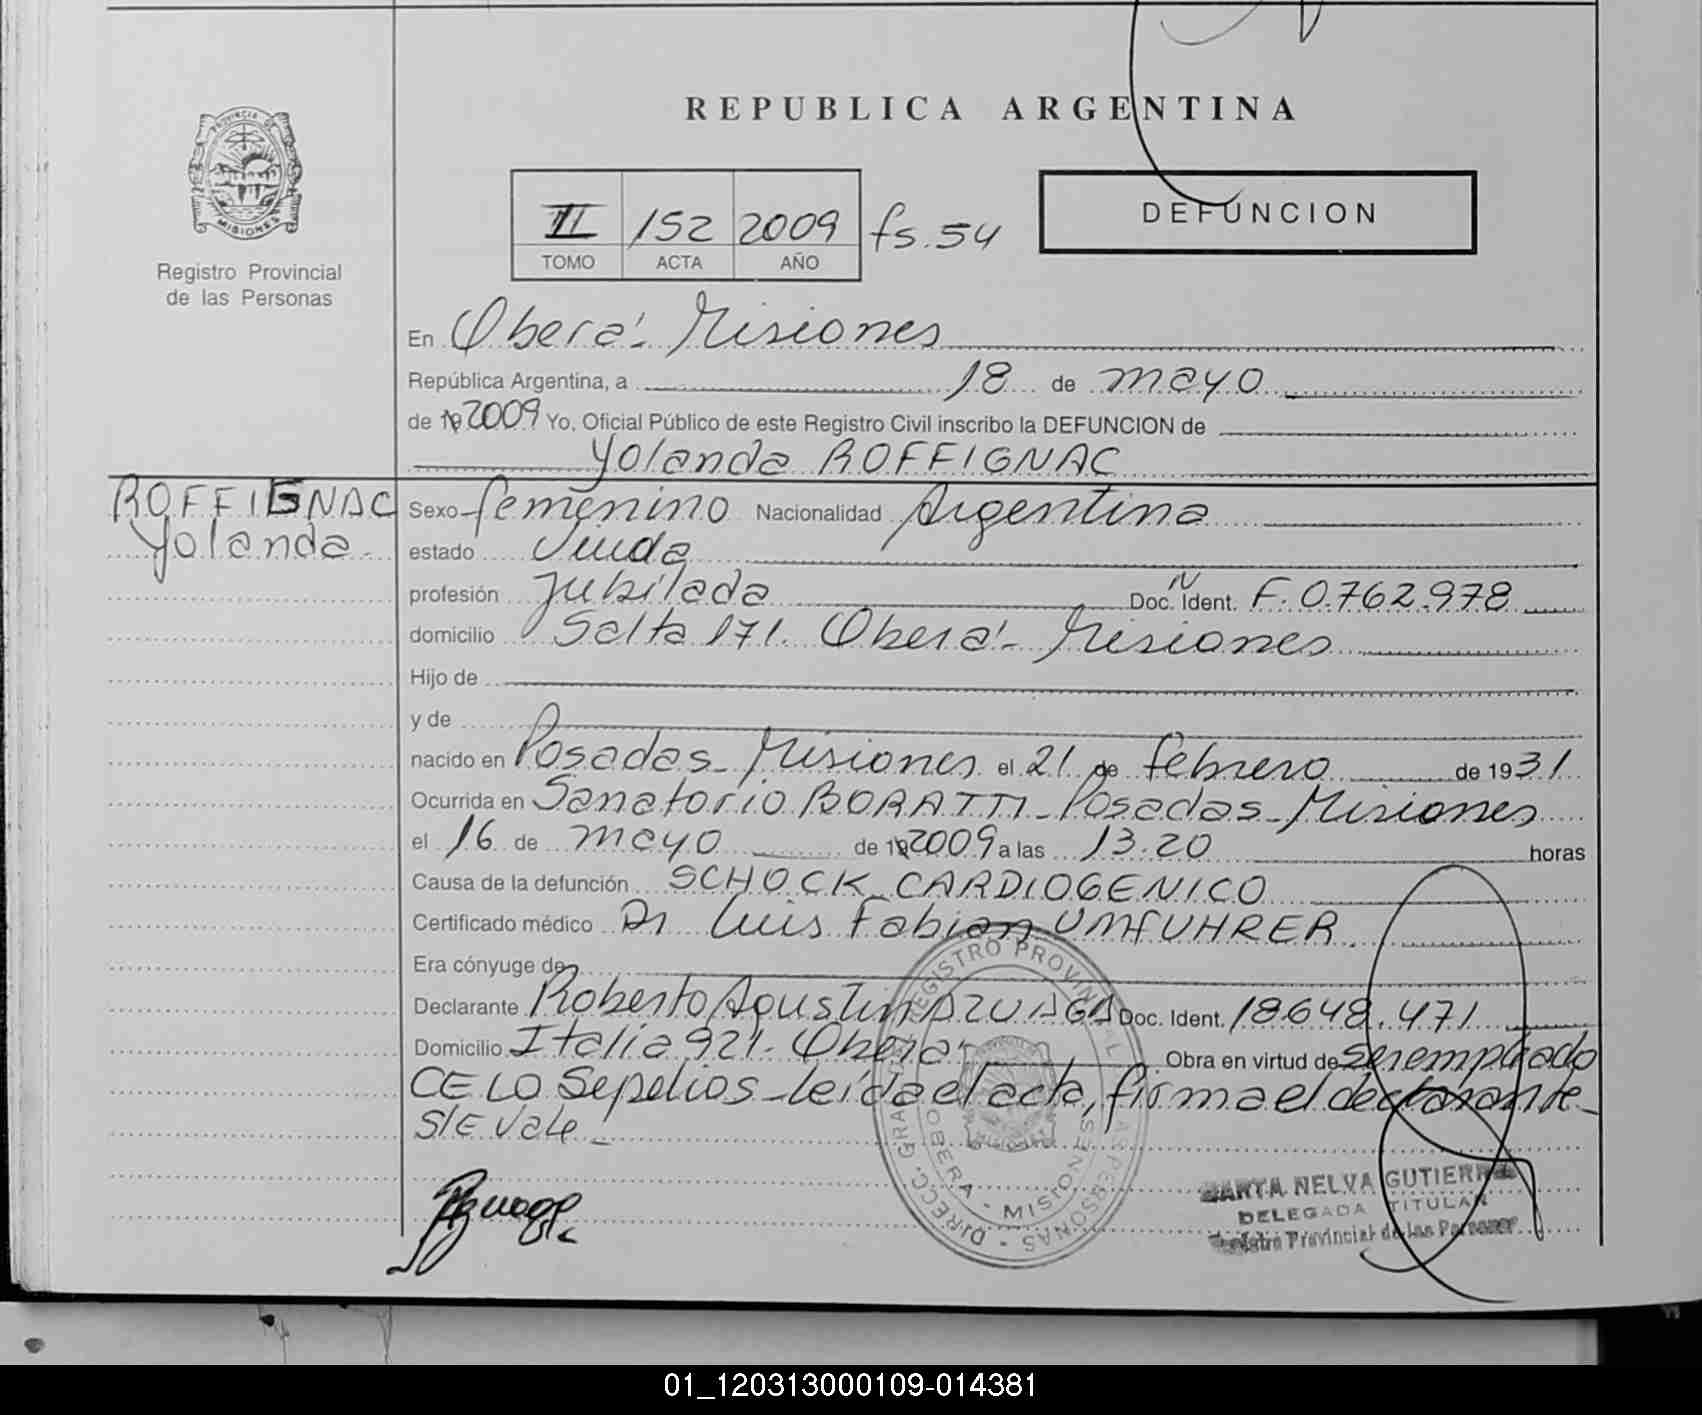 REPUBLICA ARGENTINA
PROVINCIA DE
MISIONES
Registro Provincial
de las Personas
II 152 2009 fs. 54
TOMO ACTA AÑO
DEFUNCION
En Oberá - Misiones
República Argentina, a 18 de mayo
de 19 2009 Yo, Oficial Público de este Registro Civil inscribo la DEFUNCION de
Yolanda ROFFIGNAC
ROFFIGNAC
Yolanda
Sexo femenino Nacionalidad Argentina
estado Viuda
profesión Jubilada Doc. N Ident. F. 0.762.978
domicilio Salta 171. Oberá - Misiones
Hijo de
y de
nacido en Posadas - Misiones el 21 de febrero de 1931
Ocurrida en Sanatorio BORATTI - Posadas - Misiones
el 16 de mayo de 19 2009 a las 13.20 horas
Causa de la defunción SCHOCK CARDIOGENICO
Certificado médico Dr Luis Fabian UMFUHRER.
Era cónyuge de
Declarante Roberto Agustin AZUAGA Doc. Ident. 18.648.471
Domicilio Italia 921. Oberá Obra en virtud de ser empleado
CELO Sepelios - leída el acta, firma el declarante -
S/E Vale -
DIRECC. GRAL. REGISTRO PROVINCIAL DE LAS PERSONAS
OBERA - MISIONES
MARTA NELVA GUTIERREZ
DELEGADA TITULAR
Registro Provincial de las Personas
01_120313000109-014381